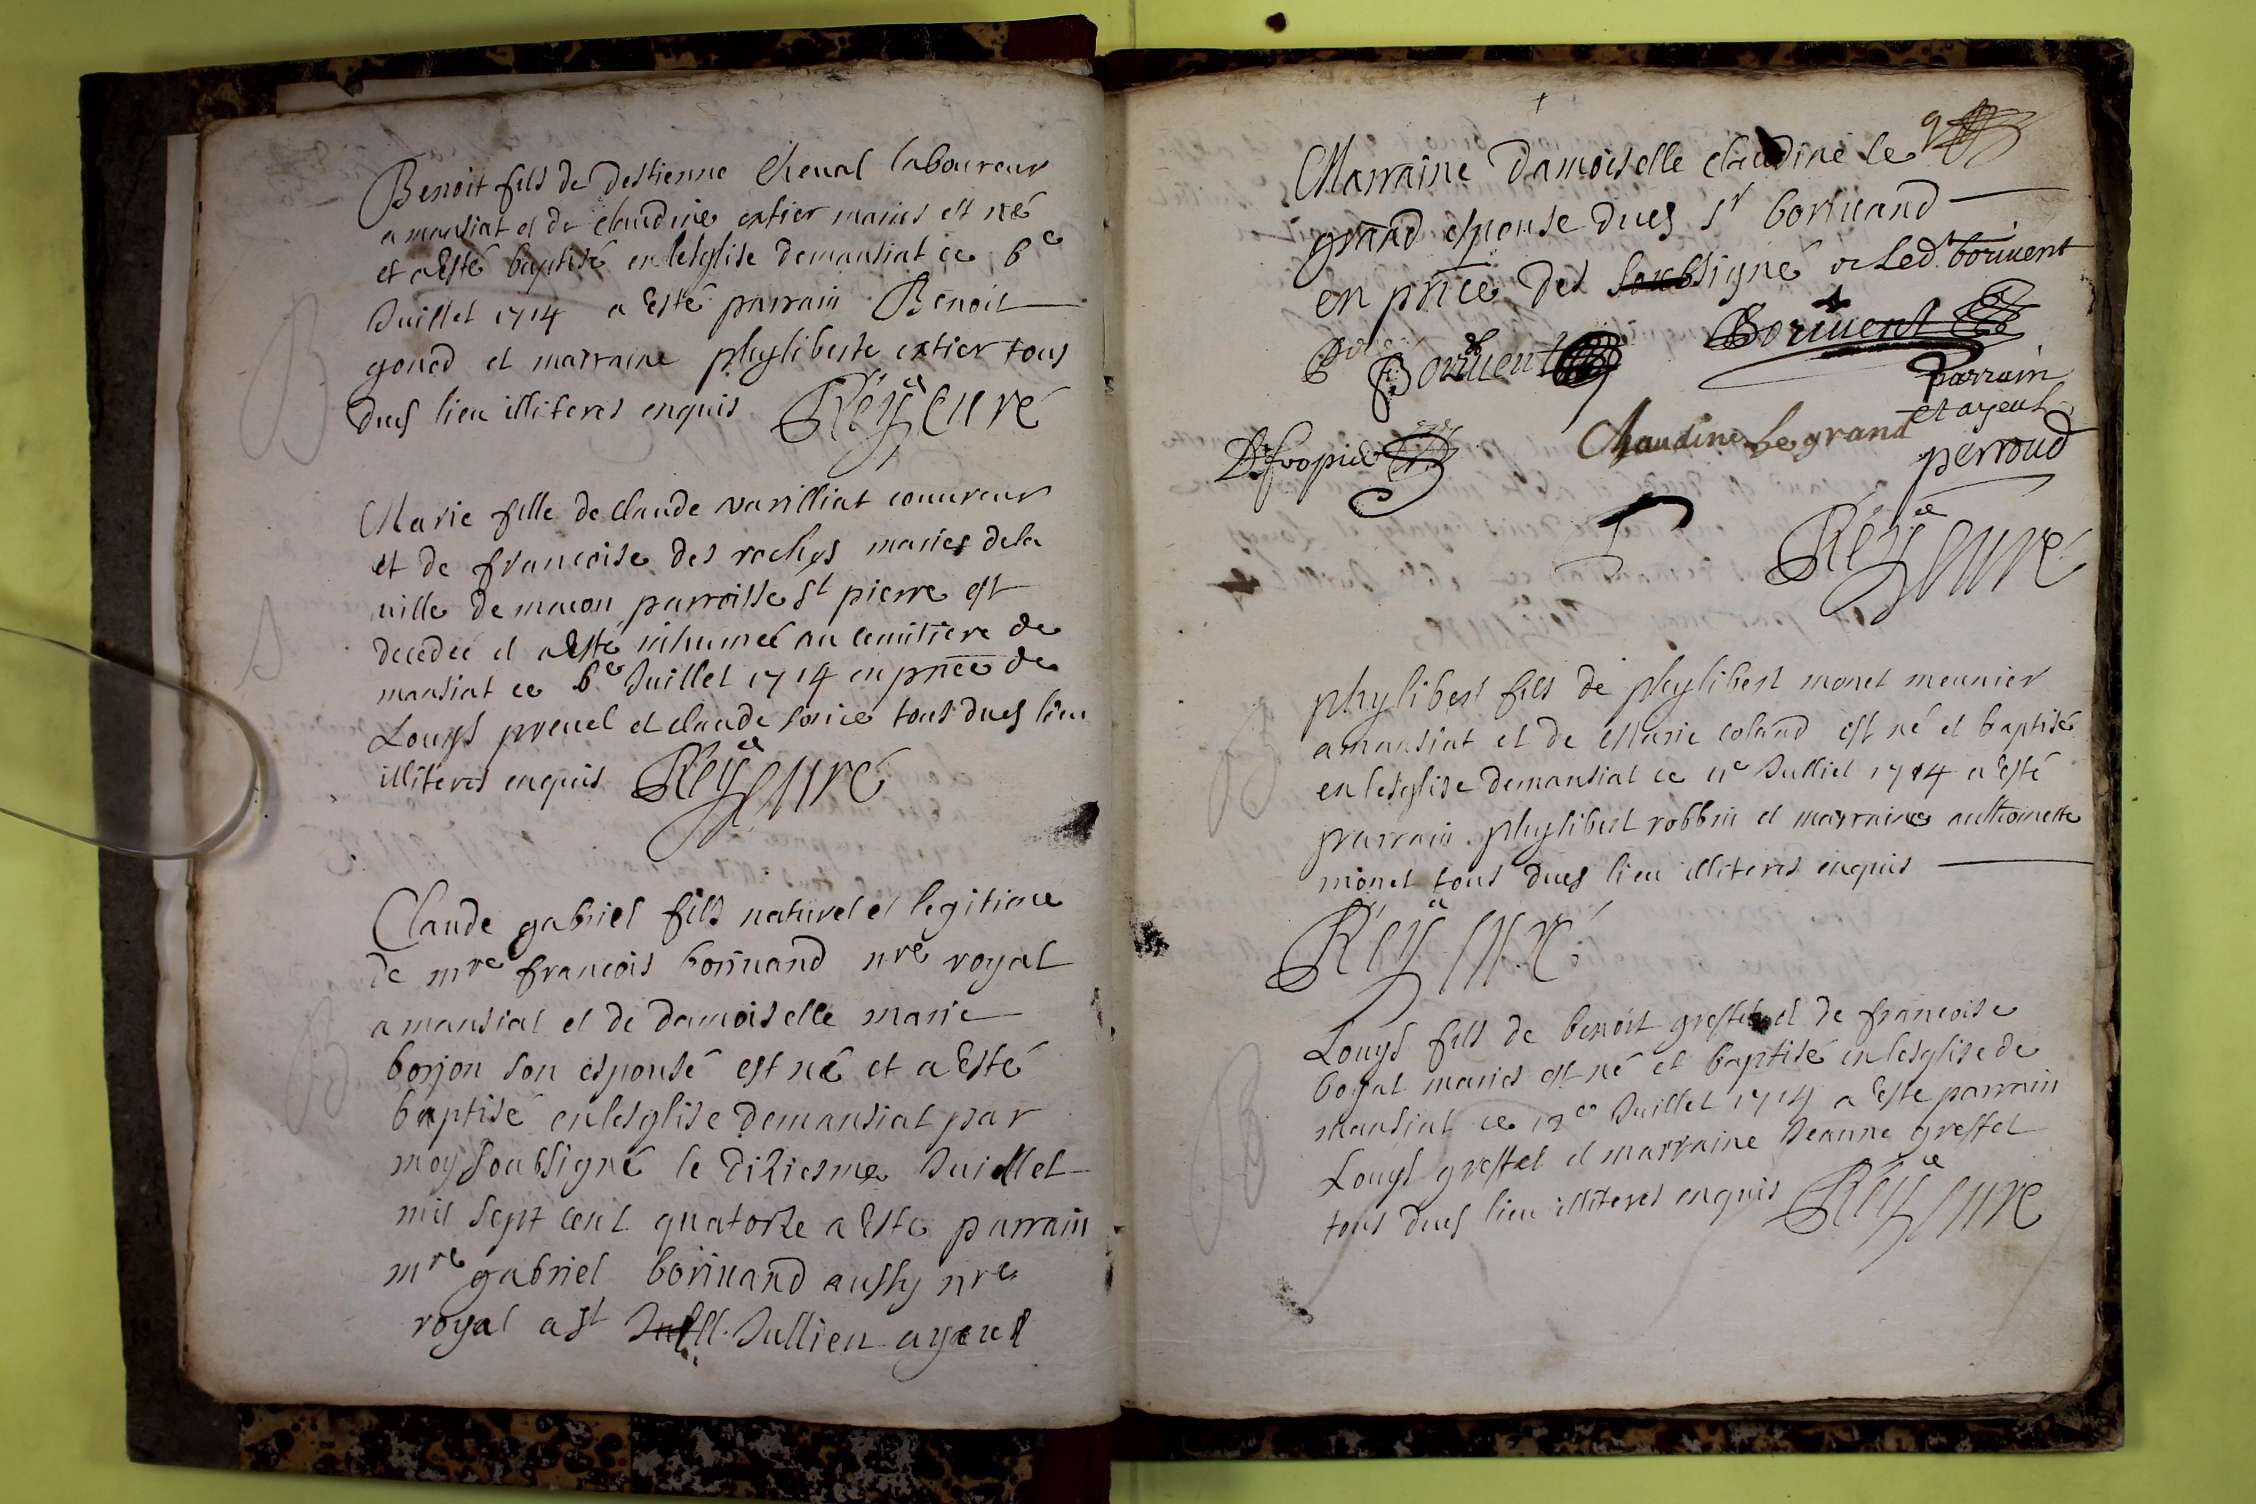 B
Benoit fils de destienne Cheual laboureur
a mansiat et de claudine extier maries est né
et a Esté baptisé en lesglise demansiat ce 6e
Juillet 1714 a Esté parrain Benoit
goned et marraine phyliberte extier tous
dud lieu illiteres enquis Rey curé
S
Marie fille de claude varilliat couureur
et de francoise des roches maries dela
uille de macon parroisse st pierre est
decedeé et a Esté inhumeé au cemitiere de
mansiat ce 6e Juillet 1714 en pñce de
Louys preuel et claude sorice tous dud lieu
illiteres enquis Rey curé
B
Claude gabriel fils naturel et legitime
de mre francois boriuand nre royal
a mansiat et de damoiselle marie
borjon son espouse est né et a Esté
baptisé en lesglise demansiat par
moy soubsigné le diziesme Juillet
mil sept cent quatorze a Esté parrain
mre gabriel boriuand aussy nre
royal a st Jull. Jullien ayeul
9
Marraine damoiselle claudine le
grand espouse dud sr boriuand
en pñce des soubsigné et led. boriuent
Boriuent Boriuent
parrain
et ayeul
Claudine Le grand
perroud
Rey curé
B
phylibert fils de phylibert monet meunier
a mansiat et de Marie coland est né et baptisé
en lesglise demansiat ce 11e Julliet 1714 a Esté
parrain phylibert robbin et marraine anthoinette
monet tous dud lieu illiteres enquis
Rey curé
B
Louys fils de benoit greffet et de francoise
boyat maries est né et baptisé en lesglise de
mansiat ce 12e Juillet 1714 a Este parrain
Louys greffet et marraine Jeanne greffet
tous dud lieu illiteres enquis Rey curé